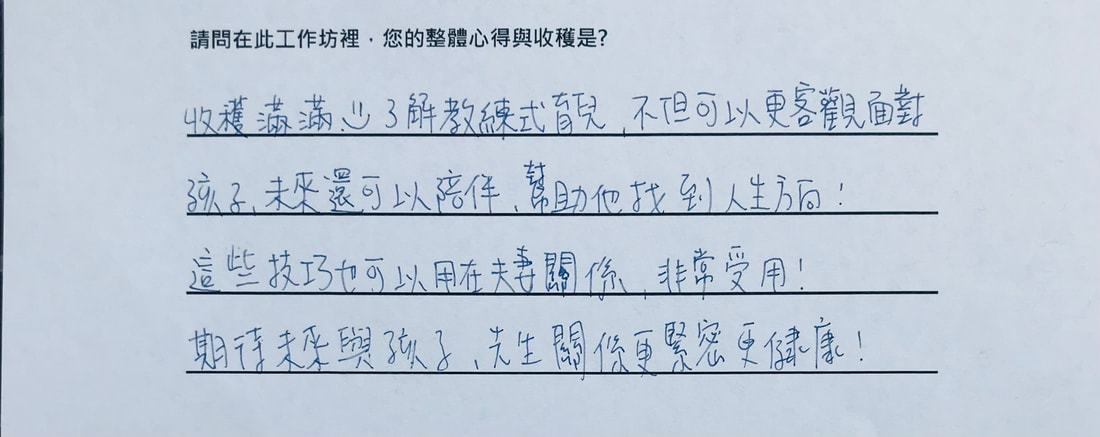 請問在此工作坊裡，您的整體心得與收穫是?
收穫滿滿 :) 了解教練式育兒，不但可以更客觀面對
孩子，未來還可以陪伴、幫助他找到人生方向！
這些技巧也可以用在夫妻關係，非常受用！
期待未來與孩子、先生關係更緊密更健康！